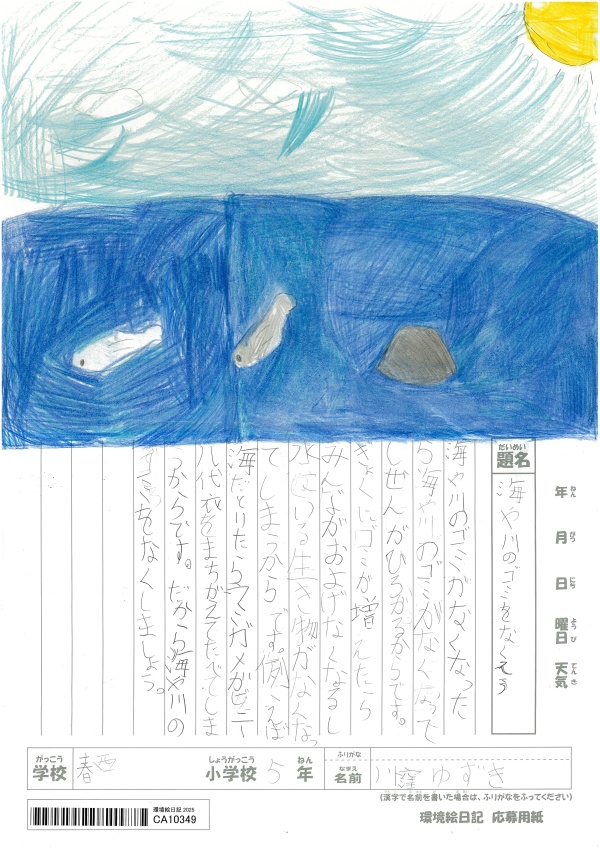 題名
だいめい
海や川のゴミをなくそう
年
ねん
月
がつ
日
にち
曜日
ようび
天気
てんき
海や川のゴミがなくなった
ら海や川のゴミがなく なって
しぜんがひろがるからです。
ぎゃくにゴミが増えたら
みんながおよげなくなるし
水にいる生き物がなくなっ
てしまうからです。例えば
海だとしたらウミガメがビニー
ルをまちがえてたべてしま
うからです。だから海や川の
ゴミをなくしましょう。
がっこう
学校
春西
しょうがっこう
小学校
5
ねん
年
ふりがな
なまえ
名前
川窪ゆずき
(漢字で名前を書いた場合は、ふりがなをふってください)
環境絵日記 2025
CA10349
環境絵日記 応募用紙